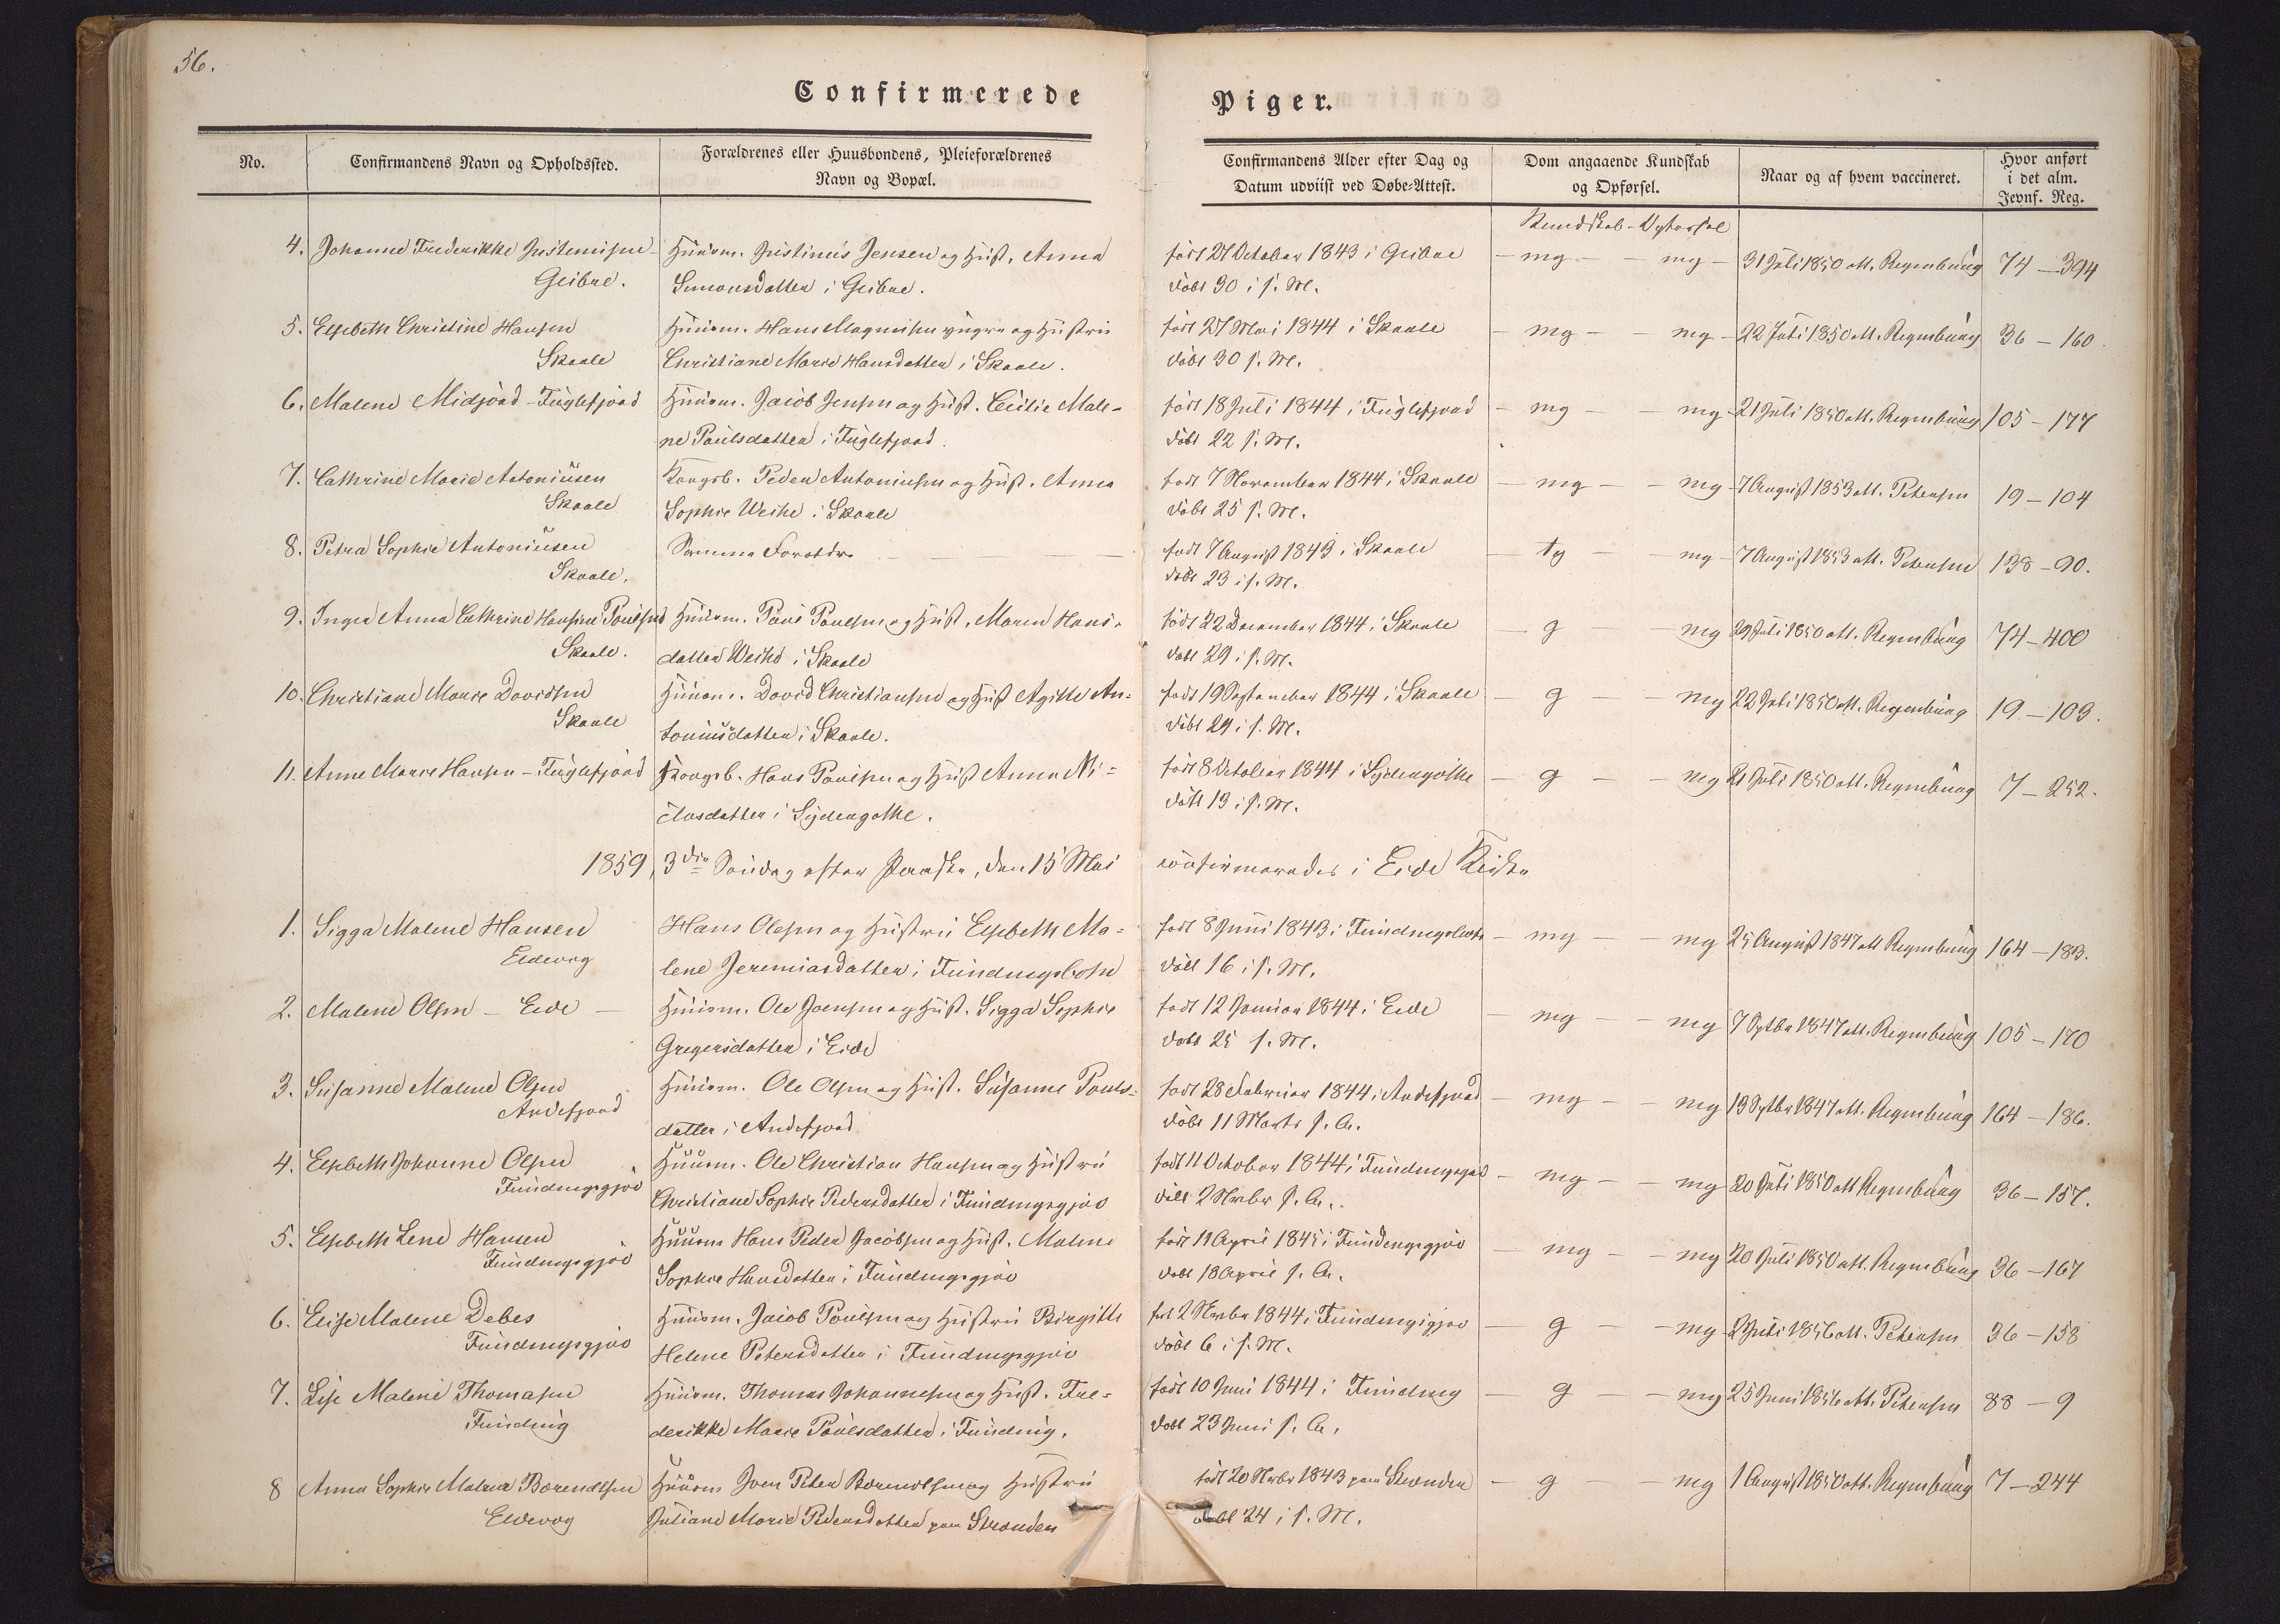 56.
Confirmerede Piger.
No.
Confirmandens Navn og Opholdssted.
Forældrenes eller Huusbondens, Pleieforældrenes
Navn og Bopæl.
Confirmandens Alder efter Dag og
Datum udviist ved Døbe-Attest.
Dom angaaende Kundskab
og Opførsel.
Naar og af hvem vaccineret.
Hvor anført
i det alm.
Jevnf. Reg.
Kundskab -
4. Johanne Frederikke Justinussen - Huusm. Justinus Jensen og Hust. Anna født 21 October 1843 i Geibue - mg - - mg - 31 Juli 1850 att. Regenburg 74 - 394
Geibue. Simonsdatter i Geibue. døbt 30 i s. M.
5. Elsebeth Christine Hansen Huusm. Hans Magnussen yngre og Hustru født 27 Mai 1844 i Skaale - mg - - mg - 22 Juli 1850 att. Regenburg 36 - 160.
Skaale Christiane Marie Hansdatter i Skaale. døbt 30 s. M.
6. Malene Midjord - Fuglefjord Huusm. Jacob Jensen og Hust. Cecilie Male- født 18 Juli 1844 i Fuglefjord - mg - - mg - 21 Juli 1850 att. Regenburg 105 - 177
ne Poulsdatter i Fuglefjord. døbt 22 s. M.
7. Cathrine Marie Antoniusen Kongsb. Peder Antoniusen og Hust. Anna født 7 November 1844 i Skaale - mg - - mg - 7 August 1853 att. Petersen 19 - 104
Skaale Sophie Weihe i Skaale døbt 25 s. M.
8. Petra Sophie Antoniusen Samme Forældre født 7 August 1843 i Skaale - tg - mg - 7 August 1853 att. Petersen 138 - 90.
Skaale. døbt 23 i s. M.
9. Inger Anna Cathrine Hansine Poulsen Huusm. Poul Poulsen og Hust. Maren Hans- født 22 December 1844 i Skaale - g - mg 29 Juli 1850 att. Regenburg 74 - 400
Skaale. datter Weihe i Skaale døbt 29 i s. M.
10. Christiane Marie Davidsen Huusm. David Christiansen og Hust Agithe An- født 19 September 1844 i Skaale - g - - mg 22 Juli 1850 att. Regenburg 19 - 103.
Skaale toniusdatter i Skaale. døbt 29 i s. M.
11. Anne Marie Hansen - Fuglefjord Kongsb. Hans Poulsen og Hust Anna Ni- født 8 October 1844 i Sydengøthe - g - - mg 21 Juli 1850 att. Regenburg 7 - 252.
clasdatter i Sydengøthe. døbt 13 i s. M.
1859, 3die Søndag efter Paaske, den 15 Mai confirmeredes i Eide Kirke
1. Sigga Malene Hansen Hans Olesen og Hustru Elsebeth Ma- født 8 Juni 1843 i Fundingsbotn - mg - - mg 25 August 1847 att Regenburg 164 - 183.
Eidevog lene Jeremiasdatter i Fundingsbotn døbt 16 i s. M.
2. Malene Olsen - Eide - Huusm. Ole Joensen og Hust. Sigga Sophie født 12 Januar 1844 i Eide - mg - - mg 7 Septbr 1847 att. Regenburg 105 - 170
Gregersdatter i Eide døbt 25 s. M.
3. Susanne Malene Olsen Huusm. Ole Olsen og Hust. Susanne Pouls- født 28 Februar 1844 i Andefjord - mg - - mg 19 Septbr 1847 att. Regenburg 164 - 186.
Andefjord datter i Andefjord døbt 11 Marts s. A.
4. Elsebeth Johanne Olsen Huusm. Ole Christian Hansen og Hustru født 11 October 1844 i Fundingsgjov - mg - - mg 20 Juli 1850 att Regenburg 36 - 157.
Fundingsgjov Christiane Sophie Pedersdatter i Fundingsgjov døbt 2 Novbr s. A.
5. Elsebeth Lene Hansen Huusm Hans Peder Jacobsen og Hust. Malene født 11 April 1845 i Fundingsgjov - mg - - mg 20 Juli 1850 att. Regenburg 36 - 167
Fundingsgjov Sophie Hansdatter i Fundingsgjov døbt 18 April s. A.
6. Elise Malene Debes Huusm. Jacob Poulsen og Hustru Birgitte født 2 Novbr 1844 i Fundingsgjov - g - - mg - 2 Juli 1856 att. Petersen 36 - 158
Fundingsgjov Helene Petersdatter i Fundingsgjov døbt 6 i s. M.
7. Lise Malene Thomasen Huusm. Thomas Johannesen og Hust. Fre- født 10 Juni 1844 i Funding - g - - mg 25 Juni 1856 att. Petersen 88 - 9
Funding derikke Marie Poulsdatter i Funding. døbt 23 Juni s. A.
8 Anna Sophie Malene Barendtsen Huusm Joen Peter Barendtsen og Hustru født 20 Novbr 1843 paa Stranden - g - - mg 1 August 1850 att. Regenburg 7 - 244
Eidevog Juliane Marie Pedersdatter paa Stranden døbt 24 i s. M.